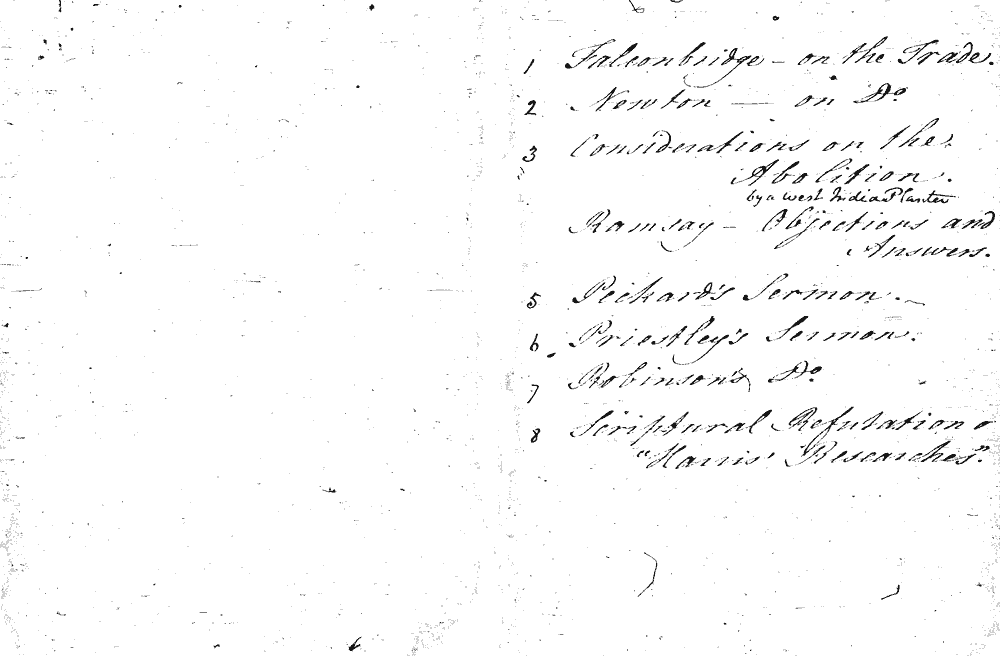 1 Falconbridge – on the Trade.
2 Newton — on Do
3 Considerations on the
Abolition.
by a West India Planter
Ramsay – Objections and
Answers.
5 Peckard's Sermon.
6 Priestley's Sermon.
7 Robinson's Do
8 Scriptural Refutation o
"Harris' Researches".